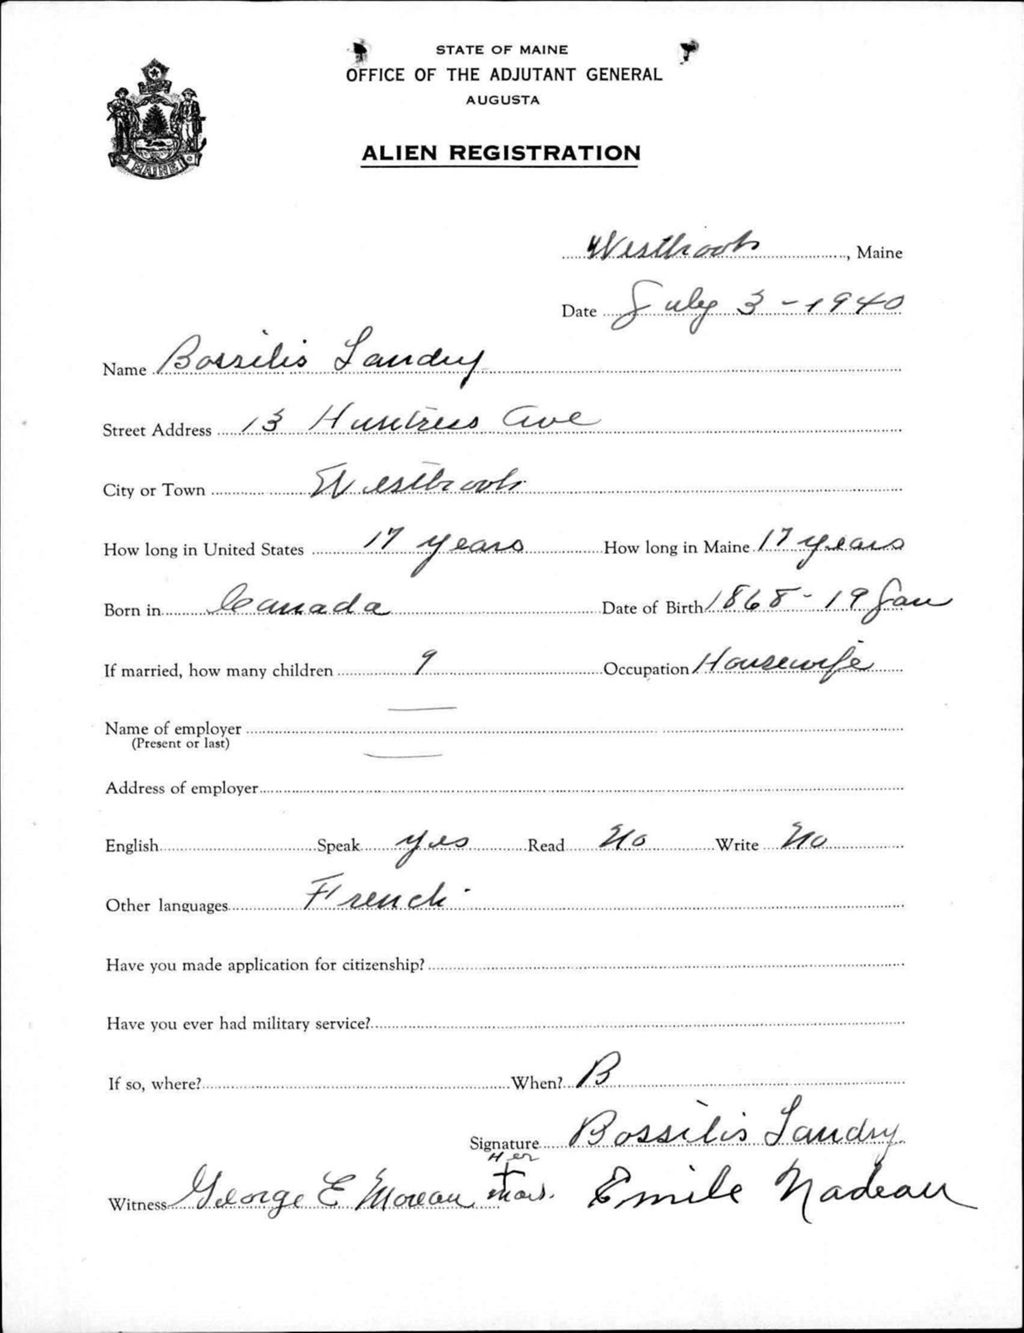 STATE OF MAINE
OFFICE OF THE ADJUTANT GENERAL
AUGUSTA
ALIEN REGISTRATION
MAINE
Westbrook, Maine
Date July 3 - 1940
Name Bossilis Landry
Street Address 13 Huntress Ave
City or Town Westbrook
How long in United States 17 years How long in Maine 17 years
Born in Canada Date of Birth 1868 - 19 Jan
If married, how many children 9 Occupation Housewife
Name of employer
(Present or last)
Address of employer
English Speak yes Read No Write No
Other languages French
Have you made application for citizenship?
Have you ever had military service?
If so, where? When? B
Signature Bossilis Landry
Her
Witness George E Moreau mark. Emile Nadeau